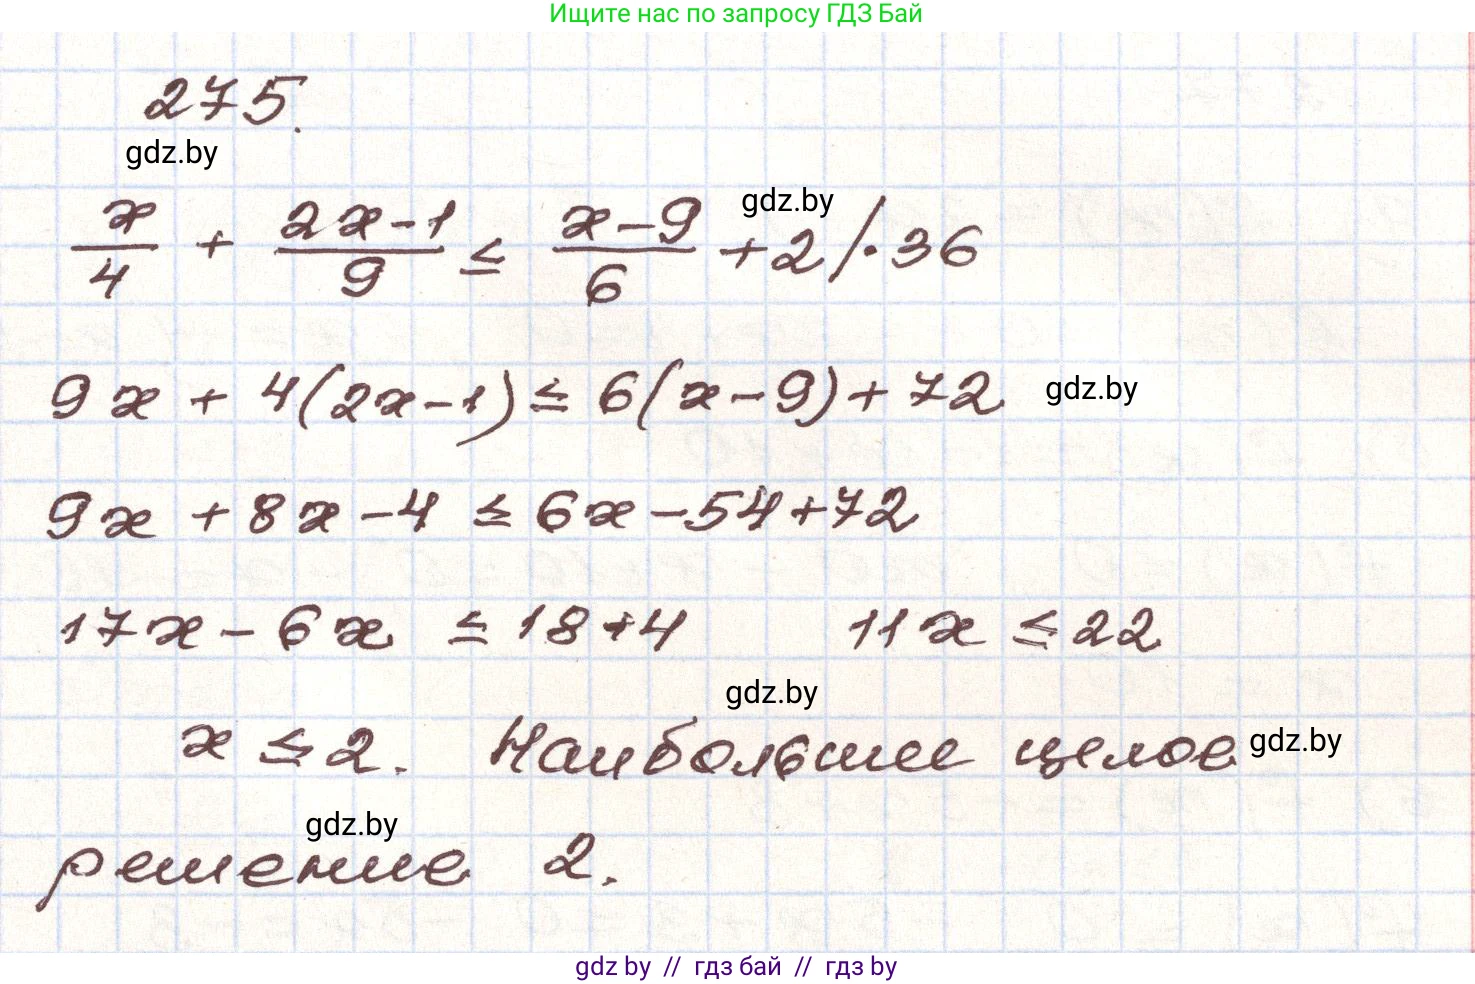 Ищите нас по запросу ГДЗ Бай
275.
gdz.by
x/4 + (2x-1)/9 ≤ (x-9)/6 + 2 /·36
gdz.by
9x + 4(2x-1) ≤ 6(x-9) + 72
gdz.by
9x + 8x - 4 ≤ 6x - 54 + 72
17x - 6x ≤ 18 + 4    11x ≤ 22
gdz.by
x ≤ 2. Наибольшее целое
gdz.by
gdz.by
решение 2.
gdz by // гдз бай // гдз by